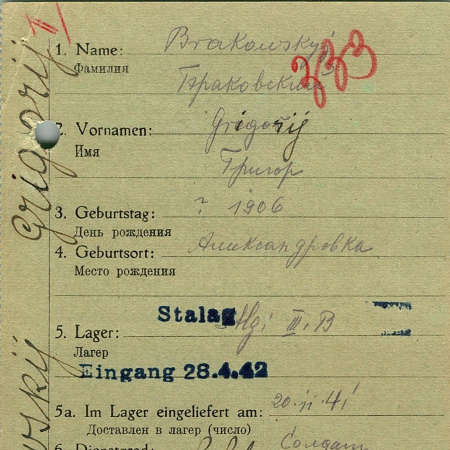 1. Name: Brakowskyj
Фамилия Браковский
333
2. Vornamen: Grigorij
Имя Григор
3. Geburtstag: ? 1906
День рождения
4. Geburtsort: Александровка
Место рождения
Stalag
5. Lager: III B
Лагер
Eingang 28.4.42
5a. Im Lager eingeliefert am: 20.11.41
Доставлен в лагер (число)
6. Dienstgrad: Солдат
Grigorij